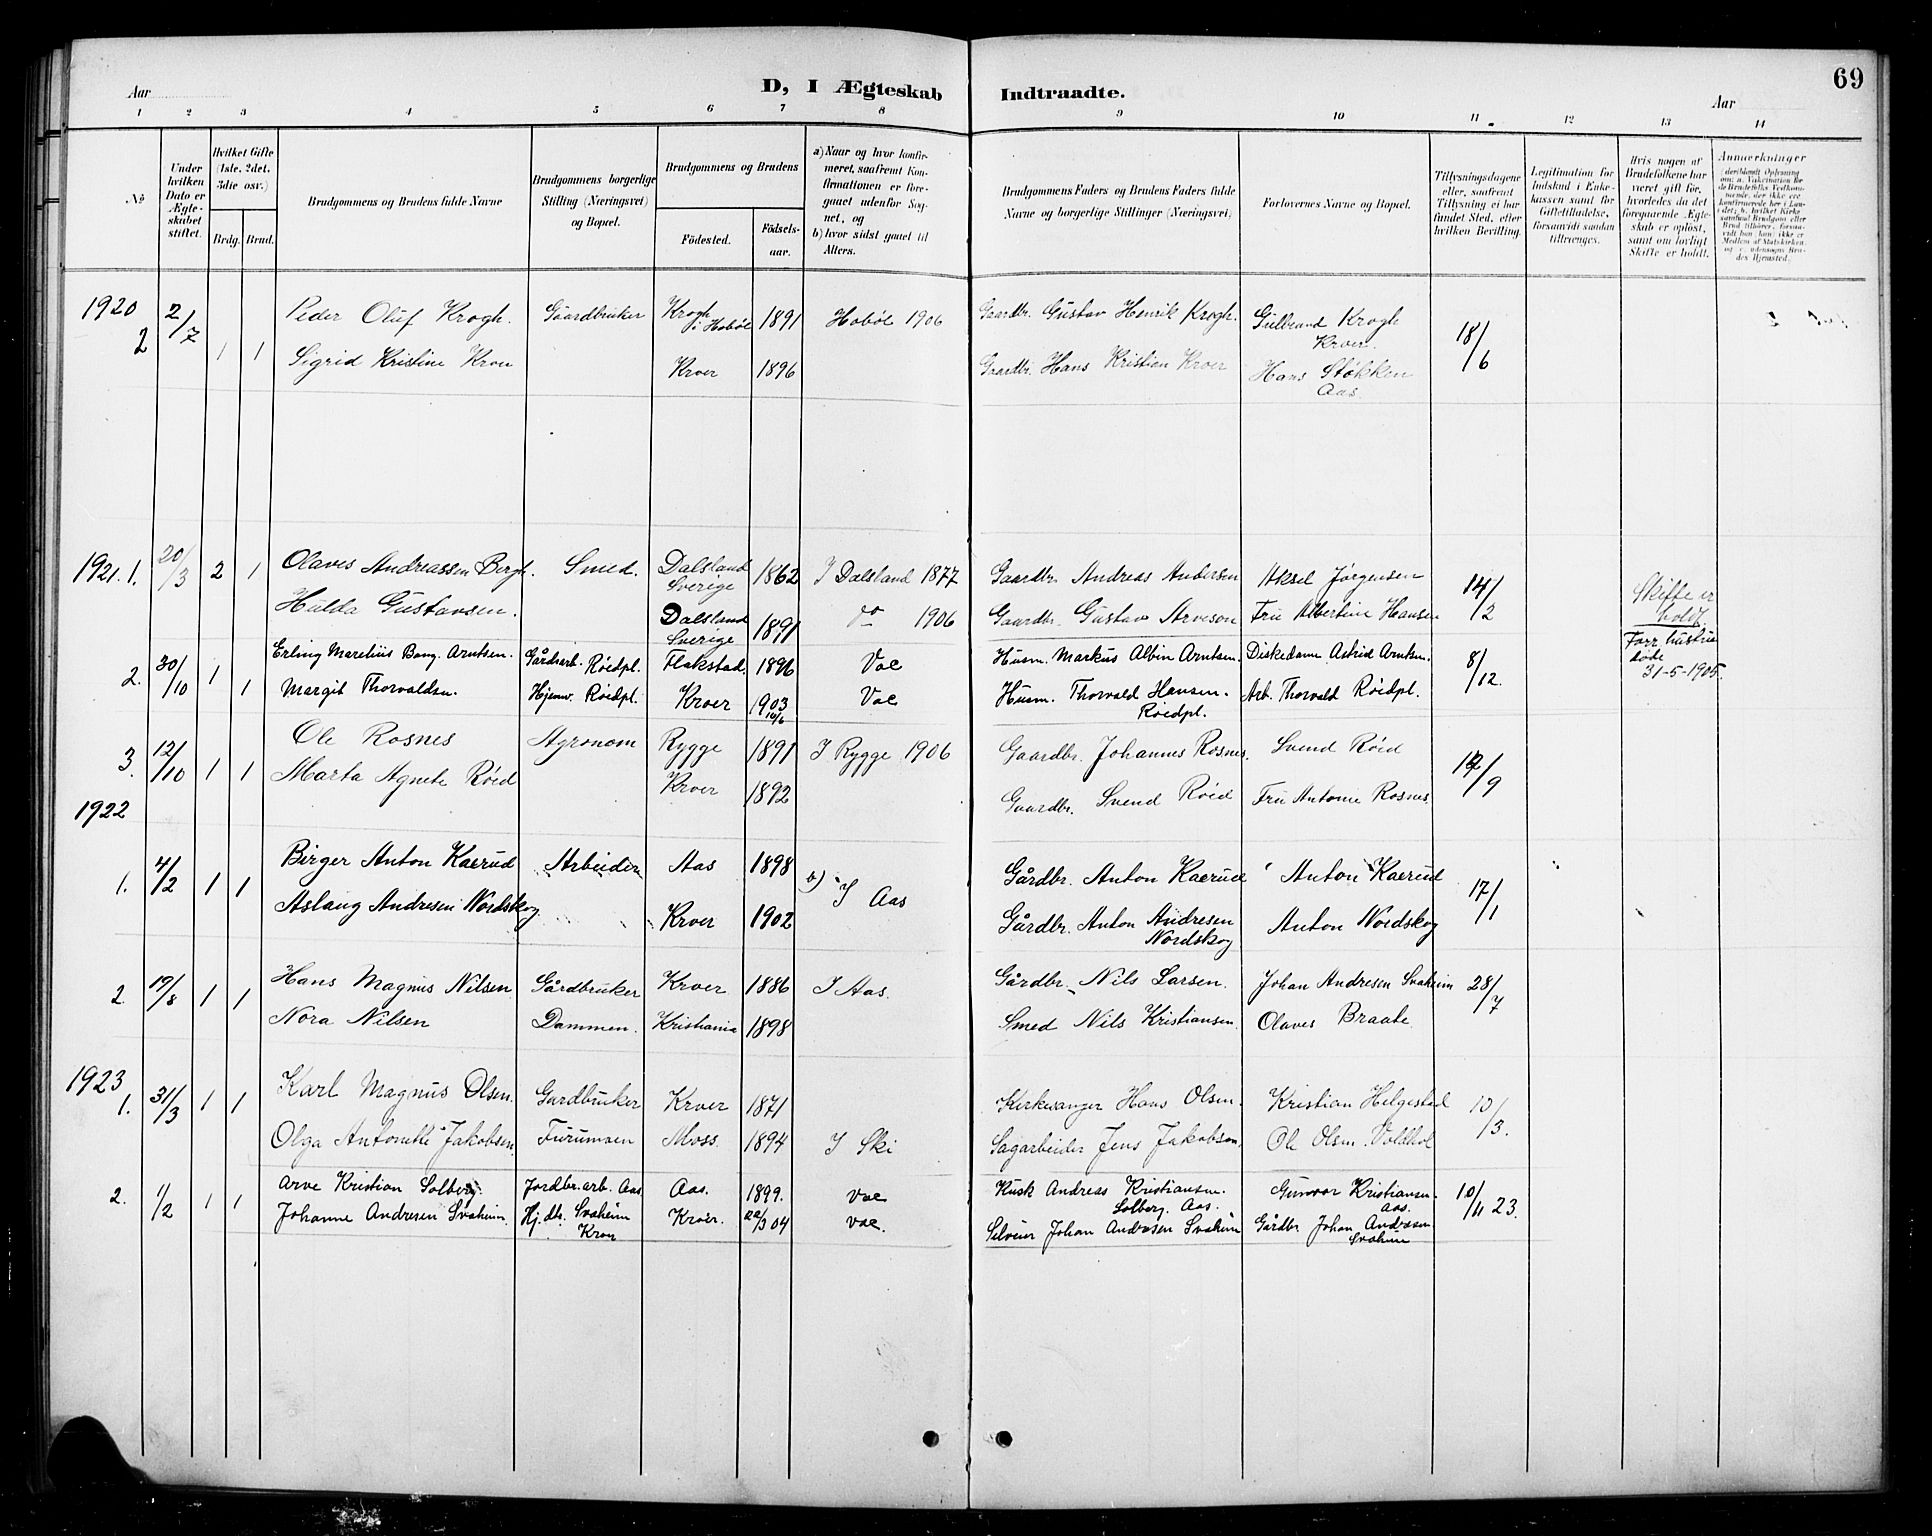 69
D, I Ægteskab Indtraadte.
Aar
Aar
1 2 3 4 5 6 7 8 9 10 11 12 13 14
No
Under hvilken Dato er Ægteskabet stiftet.
Hvilket Gifte (1ste, 2det, 3die osv.)
Brdg. Brud.
Brudgommens og Brudens fulde Navne
Brudgommens borgerlige Stilling (Næringsvei) og Bopæl.
Brudgommens og Brudens
Födested.
Födselsaar.
a) Naar og hvor konfirmeret, saafremt Konfirmationen er foregaaet udenfor Sognet, og
b) hvor sidst gaaet til Alters.
Brudgommens Faders og Brudens Faders fulde Navne og borgerlige Stillinger (Næringsvei)
Forlovernes Navne og Bopæl.
Tillysningsdagene eller, saafremt Tillysning ei har fundet Sted, efter hvilken Bevilling.
Legitimation for Indskud i Enkekassen samt for Giftetilladelse, forsaavidt saadan tiltrenges.
Hvis nogen af Brudefolkene har været gift för, hvorledes da det foregaaende Ægteskab er oplöst, samt om lovligt Skifte er holdt.
Anmærkninger
1920
2 2/7 1 1 Peder Oluf Krogh. Gaardbruker Krogh i Hobøl 1891 Hobøl 1906 Gaardbr. Gustav Henrik Krogh. Gulbrand Krogh Kroer. 18/6
Sigrid Kristine Kroer Kroer 1896 Gaardbr. Hans Kristian Kroer Hans Støkken Aas.
1921. 1. 20/3 2 1 Olaves Andreassen Bergh. Smed. Dalsland Sverige 1862 I Dalsland 1877 Gaardbr. Andreas Andersen Aksel Jørgensen 14/2 Skifte er holdt
Hulda Gustavsen. Dalsland Sverige 1891 do 1906 Gaardbr. Gustav Arveson Fru Albertine Hansen Forr. hustru døde 31-5-1905.
2. 30/10 1 1 Erling Marelius Bang. Arntsen. Gårdsarb. Røedpl. Flakstad. 1896 Vae Husm. Markus Albin Arntsen. Diskedame Astrid Arntsen. 8/12.
Margit Thorvaldsn. Hjemv. Røedpl. Kroer 1903 16/6 Vae Husm. Thorvald Hansen. Røedpl. Arb. Thorvald Røedpl.
3. 12/10 1 1 Ole Rosnes Agronom Rygge 1891 I Rygge 1906 Gaardbr. Johannes Rosnes. Svend Röid /9
Marta Agnete Röid Kroer 1892 Gaardbr. Svend Röid Fru Antonie Rosnes.
1922
1. 4/2 1 1 Birger Anton Kaerud Arbeider Aas 1898 b) I Aas Gårdbr. Anton Kaerud Anton Kaerud 17/1
Aslaug Andresen Nordskog Kroer 1902 Gårdbr. Anton Andresen Nordskog Anton Nordskog
2. 19/8 1 1 Hans Magnus Nilsen Gårdbruker Kroer 1886 I Aas. Gårdbr. Nils Larsen. Johan Andresen Svaheim 28/7
Nora Nilsen Dammen. Kristiania 1898 Smed Nils Kristiansen. Olaves Braate.
1923
1. 31/3 1 1 Karl Magnus Olsen. Gardbruker Kroer 1871 Kirkesanger Hans Olsen. Kristian Helgestad 10/3.
Olga Antonette Jakobsen. Furumoen Moss. 1894 I Ski Sagarbeider Jens Jakobson. Ole Olsen. Voldhol
2. 1/2 1 1 Arve Kristian Solberg. Jordbr.arb. Aas. Aas. 1899. Vae Kusk Andreas Kristiansen. Solberg. Aas. Gunvor Kristiansen. Aas. 10/11 23.
Johanne Andresen Svaheim. Hj. dtr. Svaheim Kroer Kroer. 22/3 04 Vae. Selveier Johan Andresen Svaheim Gårdbr Johan Andresen Svaheim